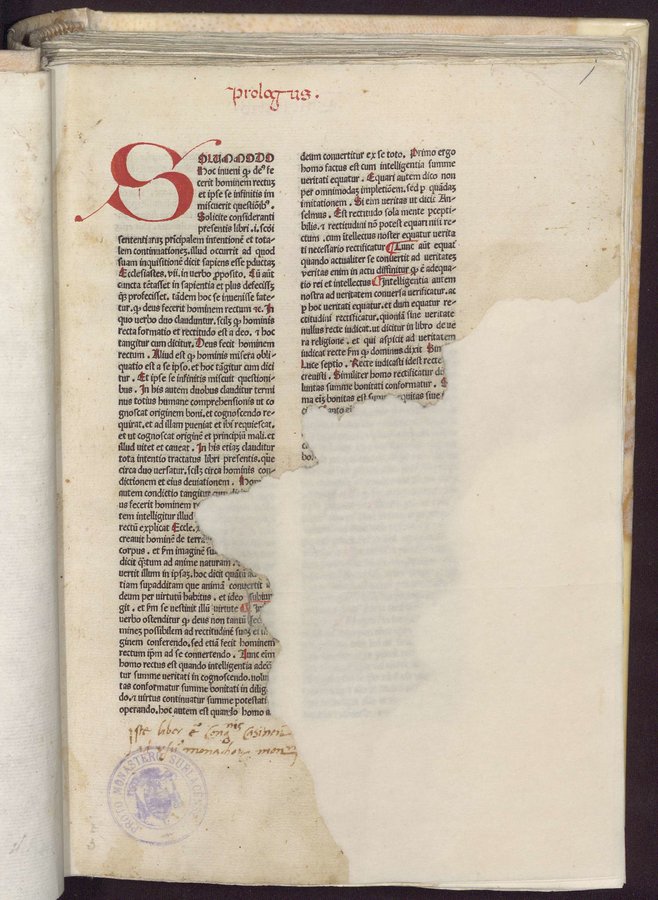 prologus.
SOLUMMODO
hoc inveni qꝙ deꝰ fe
cerit hominem rectuꝫ
et ipse se infinitis im
miscuerit questiõibꝰ.
Solicite consideranti
presentis libri .i. scõi
sententiaruꝫ prĩcipalem intentionẽ et tota
lem continuationeꝫ. illud occurrit ad quod
suam inquisitionẽ dicit sapiens esse pductaꝫ
Ecclesiastes. vii. in verbo pposito. Cũ aũt
cuncta tẽtasset in sapientia et plus defecissꝫ
qꝫ profecisset. tãdem hoc se invenisse fate-
tur. ꝙ deus fecerit hominem rectum ⁊c. In
quo verbo duo clauduntur. scilꝫ ꝙ hominis
recta formatio et rectitudo est a deo. ⁊ hoc
tangitur cum dicitur. Deus fecit hominem
rectum. Aliud est ꝙ hominis misera obli-
quatio est a se ipso. et hoc tãgitur cum dici
tur. Et ipse se infinitis miscuit questioni-
bus. In his autem duobus clauditur termi
nus totius humane comprehensionis ut co
gnoscat originem boni. et cognoscendo re-
quirat. et ad illam pueniat et ibi requiescat.
et ut cognoscat originẽ et principiũ mali. et
illud vitet et caveat. In his etiaꝫ clauditur
tota intentio tractatus libri presentis. que
circa duo versatur. scilꝫ circa hominis con-
dictionem et eius deviationem.
autem condictio tangitur
us fecerit hominem
tem intelligitur illud
rectũ explicat Eccle.
creavit hominẽ de terra
corpus. et fm imaginẽ
dicit qꝫtum ad anime naturam.
vertit illum in ipsaꝫ. hoc dicit
tiam supadditam que animã convertit
deum per virtutũ habitus. et ideo subiun
git. et fm se vestivit illũ virtute
verbo ostenditur ꝙ deus non tantũ
mineꝫ possibilem ad rectitudinẽ
ginem conferendo. sed etiã fecit hominem
rectum ipm ad se convertendo. Tunc eĩm
homo rectus est quando intelligentia adeq
tur summe veritati in cognoscendo. volun
tas conformatur summe bonitati in dilig
do. ⁊ virtus continuatur summe potestati
operando. hoc autem est quando homo a
deum convertitur ex se toto. Primo ergo
homo factus est cum intelligentia summe
veritati equatur. Equari autem dico non
per omnimodaꝫ impletiõem. sed p quãdaꝫ
imitationem. Si eim veritas ut dicit An-
selmus. Est rectitudo sola mente pcepti-
bilis. ⁊ rectitudini nõ potest equari nisi re-
ctum. cum ĩtellectus noster equatur verita
ti necessario rectificatur. Tunc aũt equat
quando actualiter se convertit ad veritateꝫ
veritas enim in actu diffinitur ꝙ ẽ adequa-
tio rei et intellectus Intelligentia autem
nostra ad veritatem conversa verificatur. ac
p hoc veritati equatur. et dum equatur re-
ctitudini rectificatur. quoniã sine veritate
nullus recte iudicat. ut dicitur in libro de ve
ra religione. et qui aspicit ad veritatem
iudicat recte fm ꝙ dominus dixit
Luce septio. Recte iudicasti idest recte
crevisti. Similiter homo rectificatur
luntas summe bonitati conformatur.
ma eiꝫ bonitas est equitas sive
bo
iste liber ẽ Congnis Casinẽ
monachoꝝ
PROTO MONASTERO SUBLACENSE